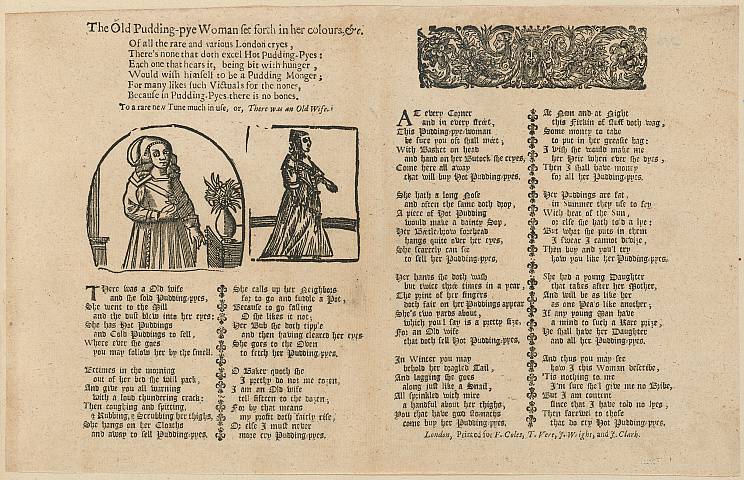 The Old Pudding-pye Woman set forth in her colours, &c.
Of all the rare and various London cryes,
There's none that doth excel Hot Pudding-Pyes:
Each one that hears it, being bit with hunger,
Would wish himself to be a Pudding Monger;
For many likes such Victuals for the nones,
Because in Pudding-Pyes there is no bones.
To a rare new Tune much in use, or, There was an Old Wife.
THere was a Old wife
and she sold Pudding-pyes,
She went to the Mill
and the dust blew into her eyes:
She has Hot Puddings
and Cold Puddings to sell,
Where ever she goes
you may follow her by the smell.
Betimes in the morning
out of her bed she will pack,
And give you all warning
with a loud thundering crack:
Then coughing and spitting,
& Rubbing, & Scrubbing her thighs,
She hangs on her Cloaths
and away to sell Pudding-pyes.
She calls up her Neighbors
for to go and fuddle a Pot,
Because to go fasting
O she likes it not;
Her Bub she doth tipp'e
and then having cleared her eyes
She goes to the Oven
to fetch her Pudding-pyes.
O Baker quoth she
I pretty do not me cozen,
I am an Old wife
tell fifteen to the dozen;
For by that means
my profit doth fairly rise,
Or else I must never
more cry Pudding-pyes.
AT every Corner
and in every street,
This Pudding-pye-woman
be sure you oft shall meet;
With Basket on head
and hand on her Buttock she cryes,
Come here all away
that will buy Hot Pudding-pyes.
She hath a long Nose
and often the same doth drop,
A piece of Hot Pudding
would make a dainty Sop,
Her Beetle-brow forehead
hangs quite over her eyes,
She scarcely can see
to sell her Pudding-pyes.
Her hands she doth wash
but twice three times in a year,
The print of her fingers
doth fair on her Puddings appear
She's two yards about,
which you'l say is a pretty size,
For an Old wife
that doth sell Hot Pudding-pyes.
In Winter you may
behold her dragled Tail,
And lagging she goes
along just like a Snail,
All sprinkled with mire
a handful about her thighs,
You that have good stomachs
come buy her Pudding-pyes.
At Noon and at Night
this Firkin of stuff doth wag,
Some money to take
to put in her greasie bag:
I wish she would make me
her Heir when ever she dyes,
Then I shall have money
for all her Pudding-pyes.
Her Puddings are fat,
in Summer they use to fry
With heat of the Sun,
or else she hath told a lye:
But what she puts in them
I swear I cannot devize,
Then buy and you'l try
how you like her Pudding-pyes.
She had a young Daughter
that takes after her Mother,
And will be as like her
as one Pea's like another;
If any young Man have
a mind to such a Rare prize,
He shall have her Daughter
and all her Pudding-pyes.
And thus you may see
how I this Woman describe,
'Tis nothing to me
I'm sure she'l give me no Bribe,
But I am content
since that I have told no lyes;
Then farewel to those
that do cry Hot Pudding-pyes.
London, Printed for F. Coles, T. Vere, J. Wright, and J. Clark.